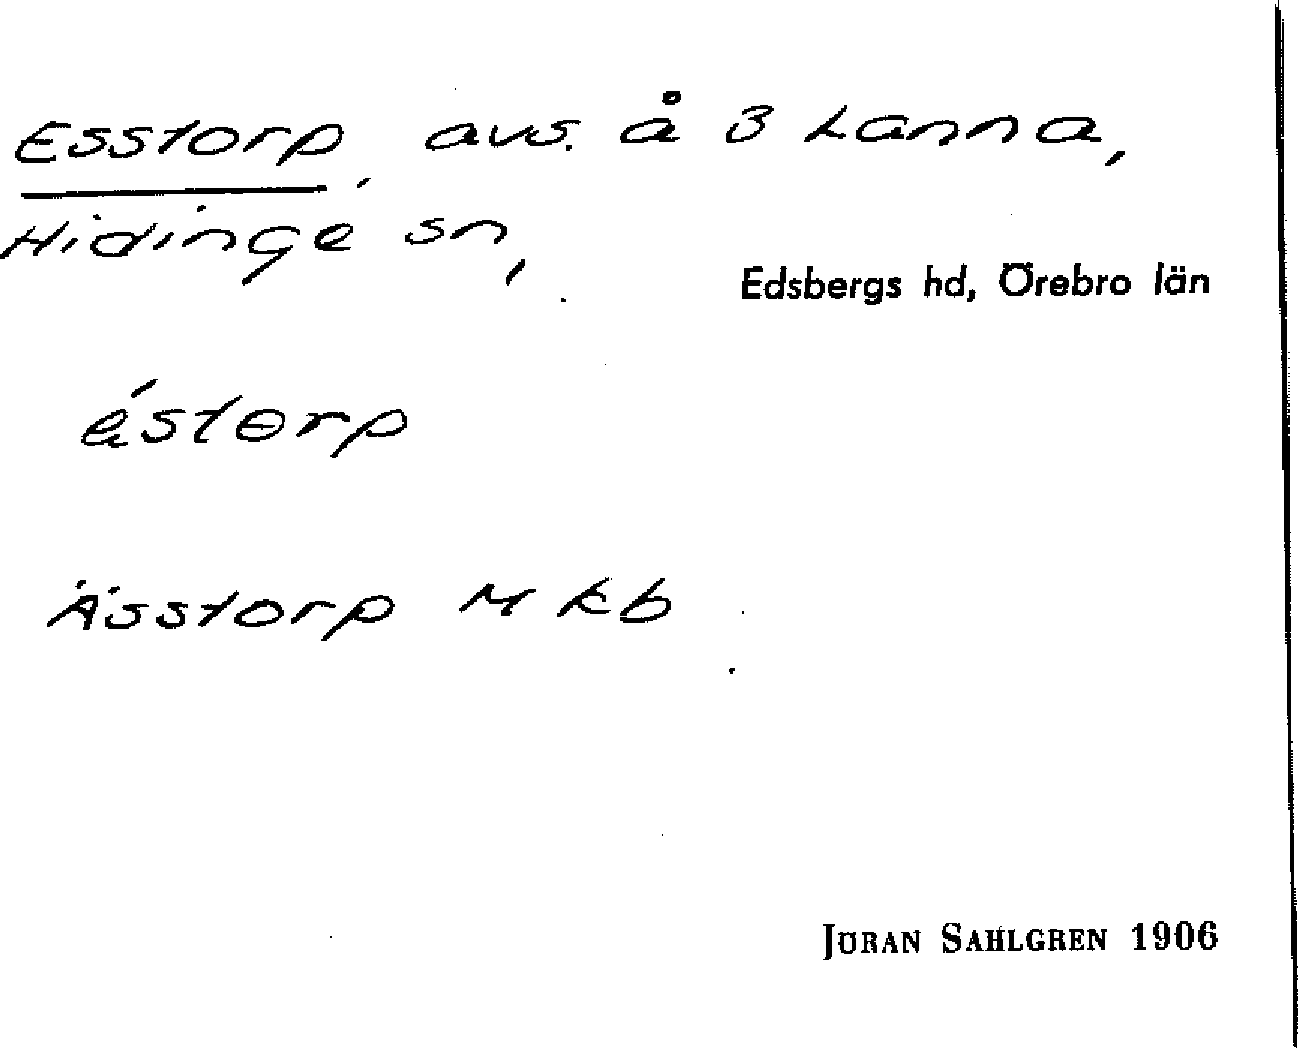 Esstorp, avs. å 3 Lanna,
Hidinge sn,
Edsbergs hd, Örebro län
éstɵrp
Ässtorp M kb
JÖRAN SAHLGREN 1906